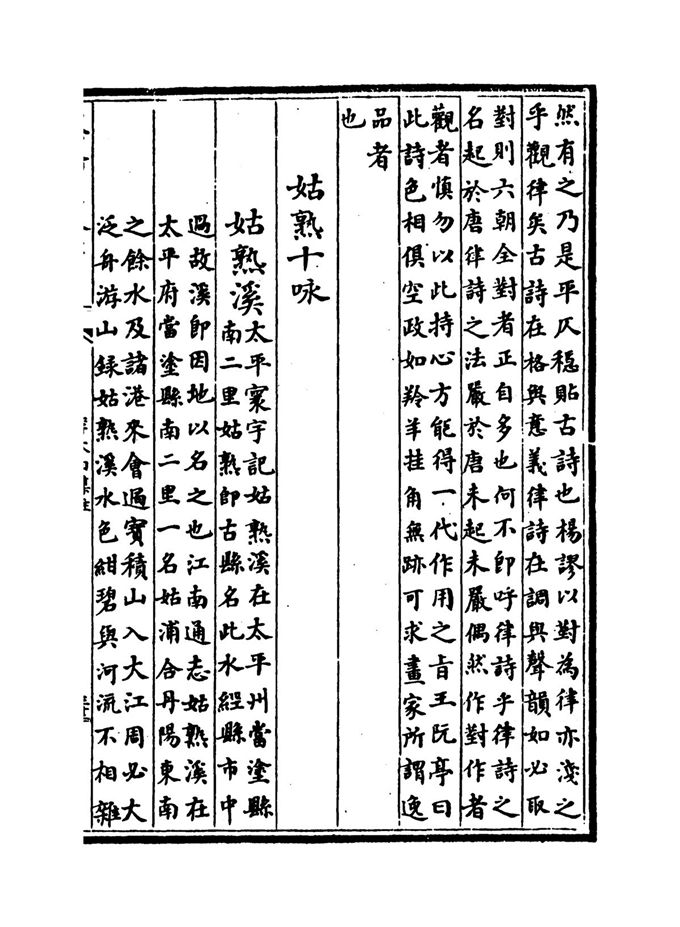 然有之乃是平仄穩貼古詩也楊謬以對為律亦淺之
乎觀律矣古詩在格與意義律詩在調與聲韻如必取
對則六朝全對者正自多也何不即呼律詩乎律詩之
名起於唐律詩之法嚴於唐未起未嚴偶然作對作者
觀者慎勿以此持心方能得一代作用之旨王阮亭曰
此詩色相俱空政如羚羊挂角無跡可求畫家所謂逸
品者
也
姑熟十咏
姑熟溪太平寰宇記姑熟溪在太平州當塗縣
南二里姑熟即古縣名此水經縣市中
過故溪即因地以名之也江南通志姑熟溪在
太平府當塗縣南二里一名姑浦合丹陽東南
之餘水及諸港來會過寶積山入大江周必大
泛舟游山録姑熟溪水色紺碧與河流不相雜